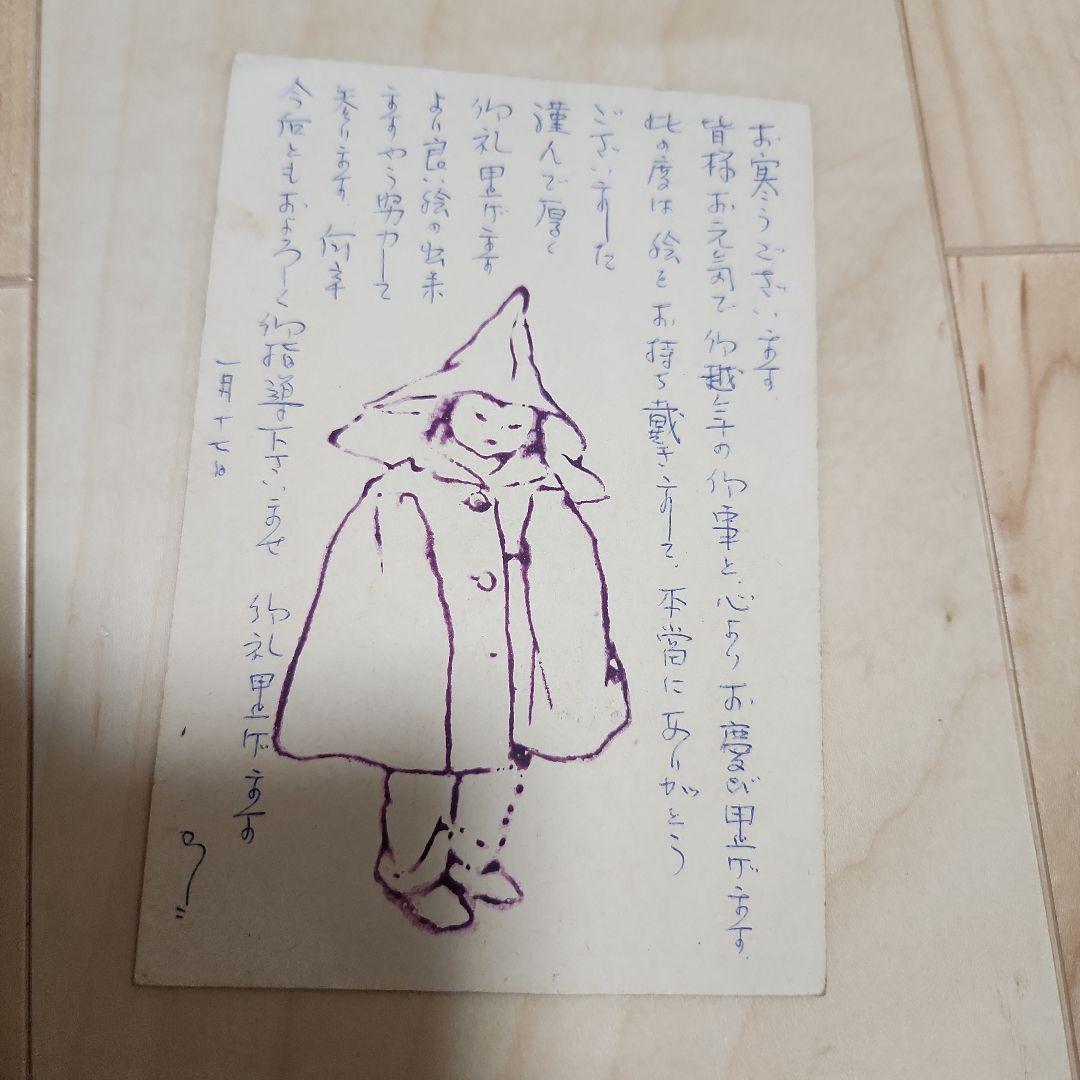 お寒うございます。
皆様お元気で御越年の御事と、心よりお慶び里げます。
此の度は絵をお持ち戴きまして、本當にありがとう
ございました
謹んで厚く
御礼里げます
より良い絵の出来
ますやう努力して
参ります、何卒
今后ともおよろしく御指導下さいませ
御礼里げます
一月十七日